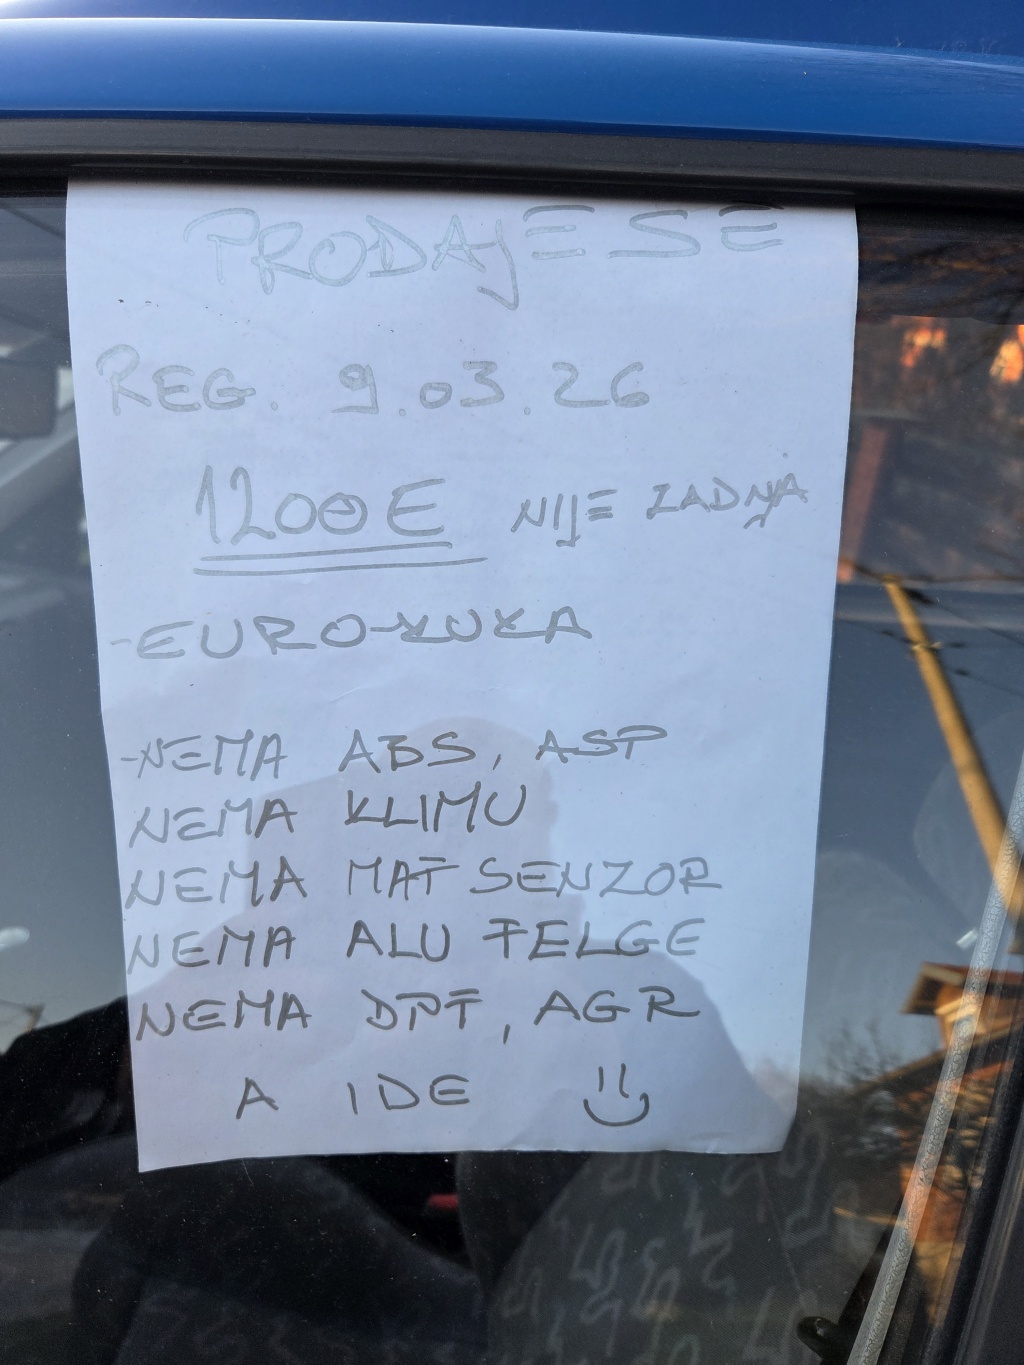 PRODAJE SE
REG. 9.03.26
1200E NIJE ZADNJA
-EURO-KUKA
-NEMA ABS, ASP
NEMA KLIMU
NEMA MAF SENZOR
NEMA ALU FELGE
NEMA DPF, AGR
A IDE